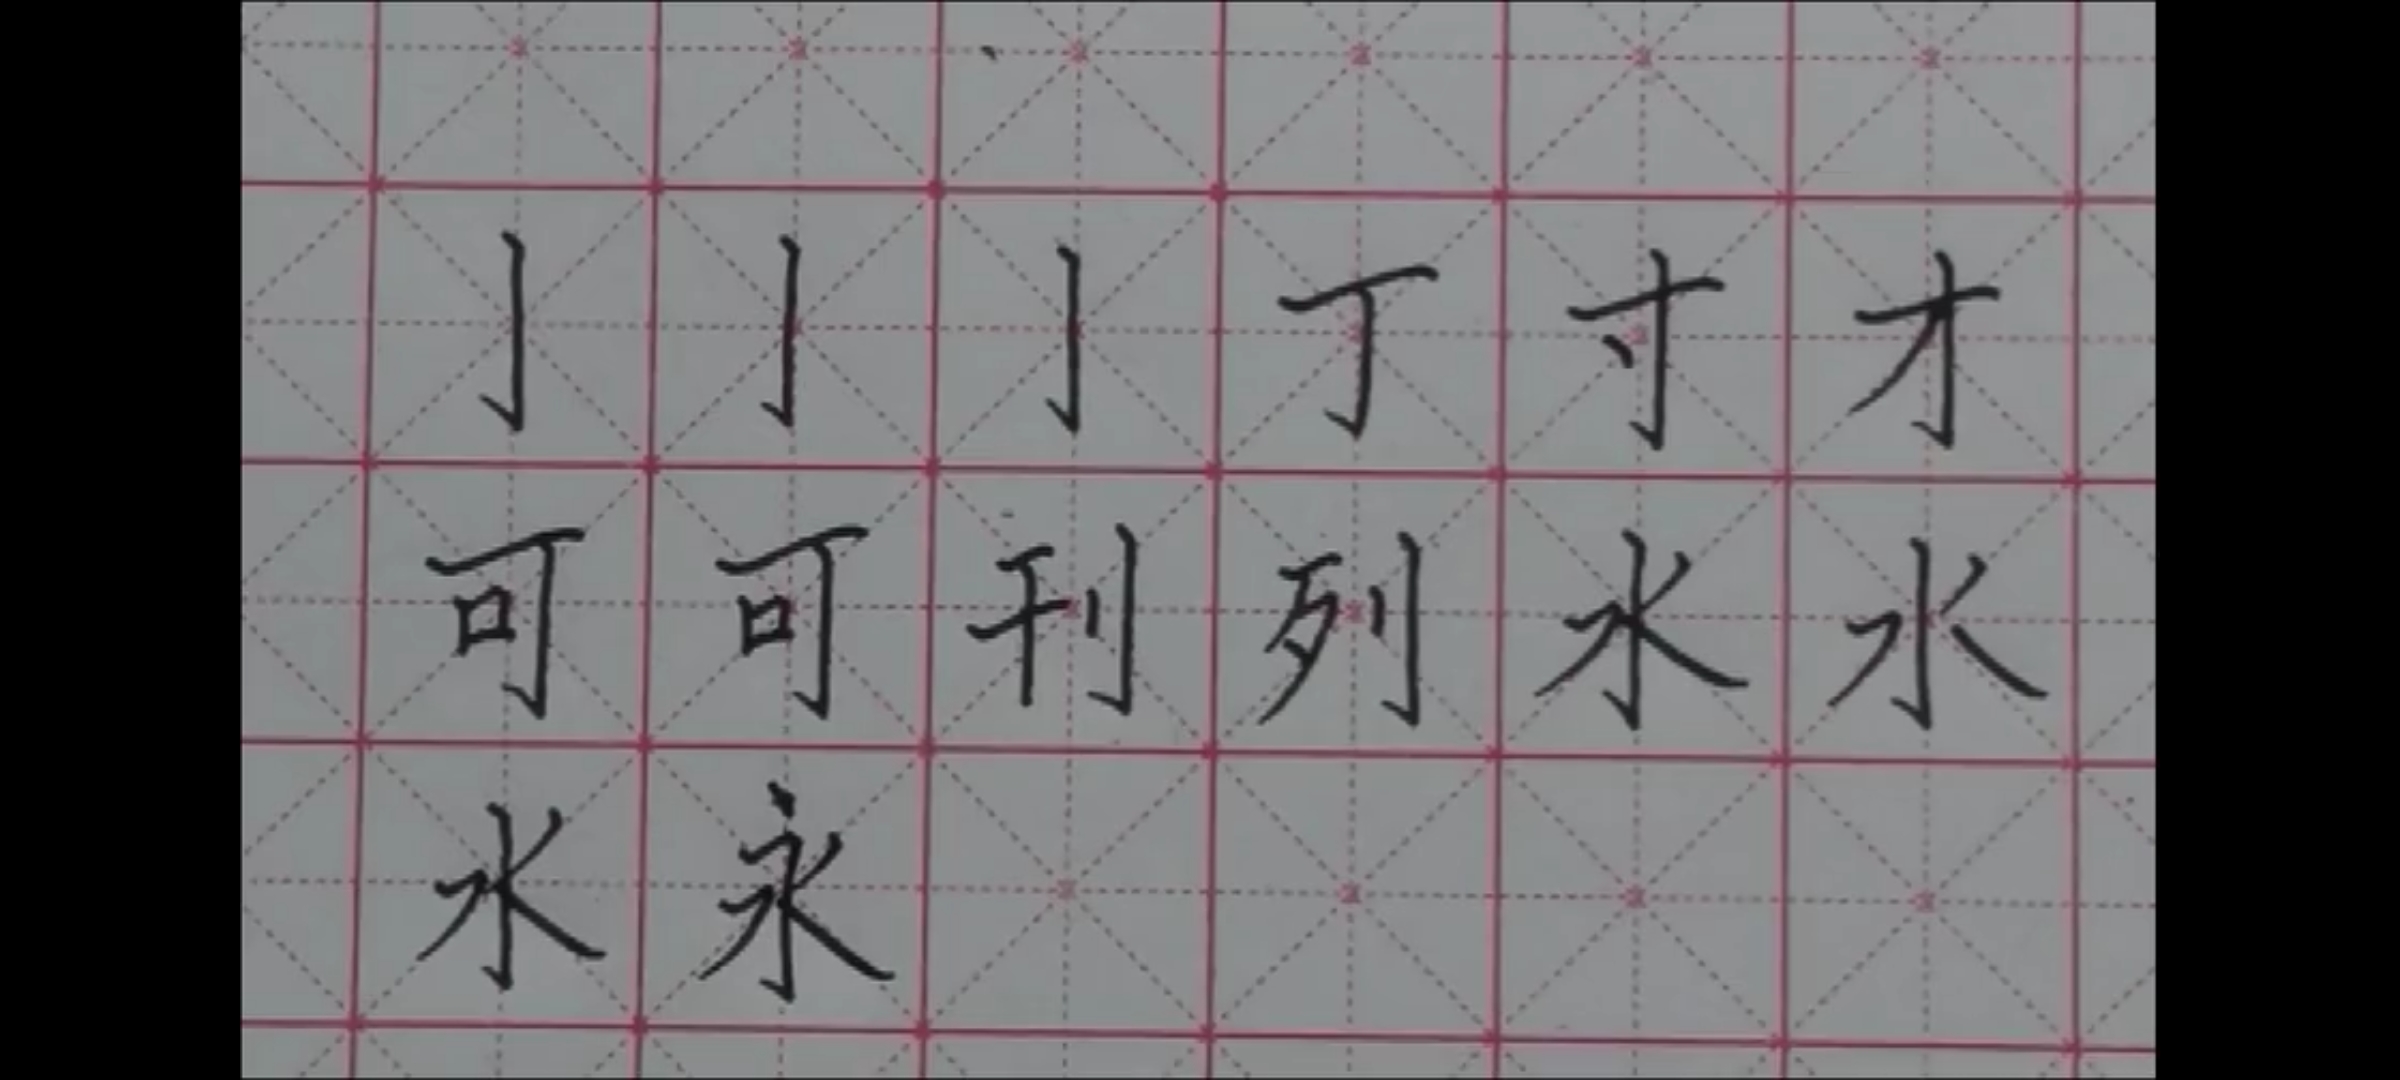 亅亅亅丁寸才
可可刊列水水
水永